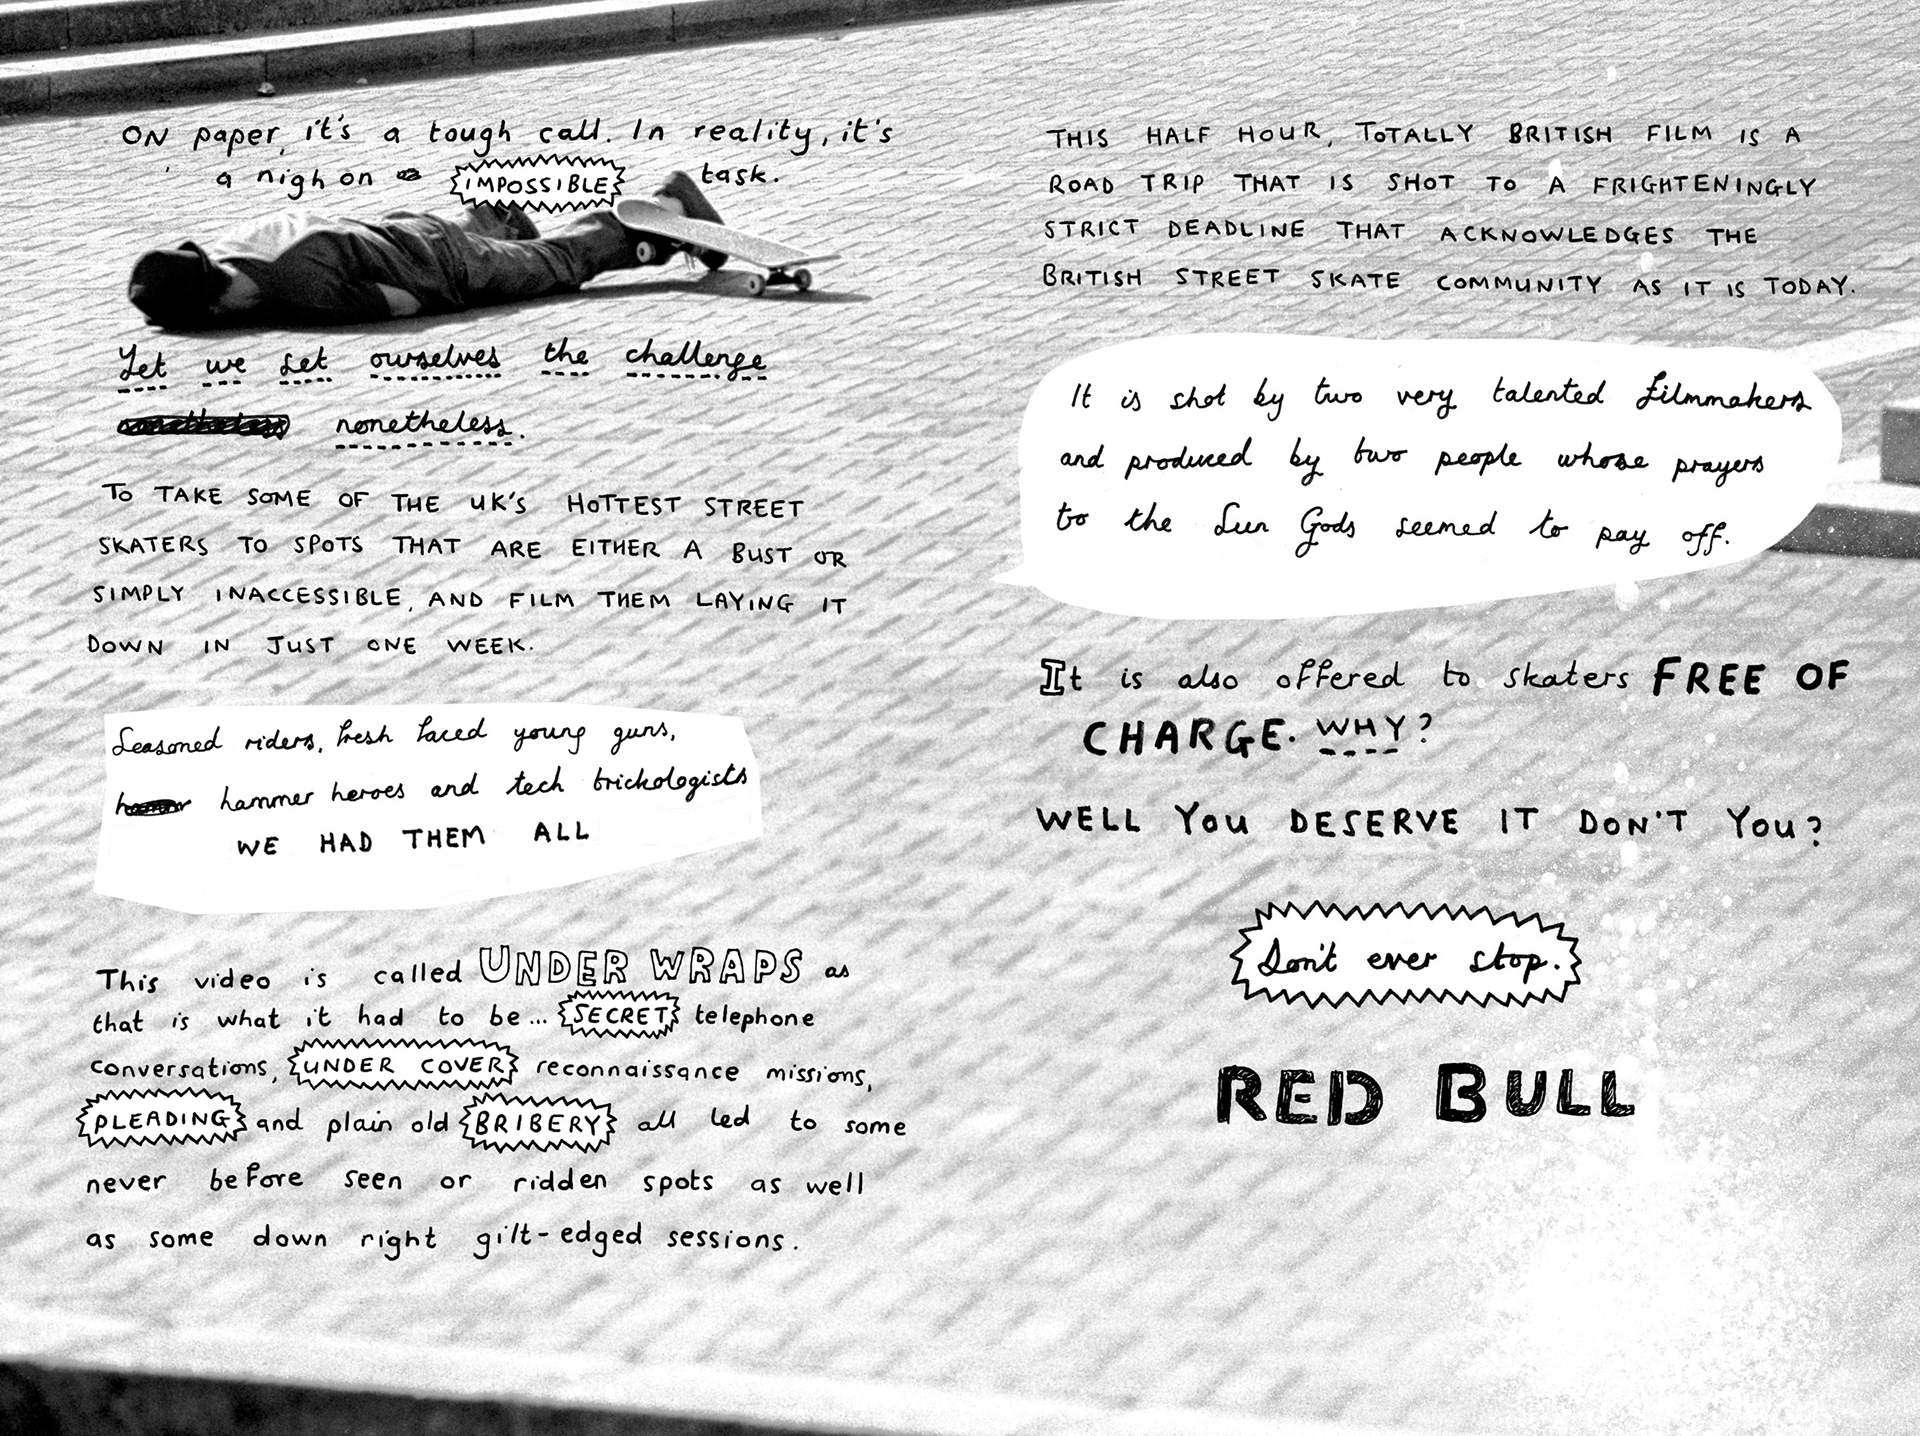 ON paper, it's a tough call. In reality, it's
a nigh on IMPOSSIBLE task.
Yet we set ourselves the challenge
nonetheless nonetheless.
TO TAKE SOME OF THE UK'S HOTTEST STREET
SKATERS TO SPOTS THAT ARE EITHER A BUST OR
SIMPLY INACCESSIBLE, AND FILM THEM LAYING IT
DOWN IN JUST ONE WEEK.
Seasoned riders, fresh faced young guns,
hammer heroes and tech brickologists
WE HAD THEM ALL
This video is called UNDER WRAPS as
that is what it had to be... SECRET telephone
conversations, UNDER COVER reconnaissance missions,
PLEADING and plain old BRIBERY all led to some
never before seen or ridden spots as well
as some down right gilt-edged sessions.
THIS HALF HOUR, TOTALLY BRITISH FILM IS A
ROAD TRIP THAT IS SHOT TO A FRIGHTENINGLY
STRICT DEADLINE THAT ACKNOWLEDGES THE
BRITISH STREET SKATE COMMUNITY AS IT IS TODAY.
It is shot by two very talented filmmakers
and produced by two people whose prayers
to the Sun Gods seemed to pay off.
It is also offered to skaters FREE OF
CHARGE. WHY?
WELL YOU DESERVE IT DON'T YOU?
Don't ever stop.
RED BULL